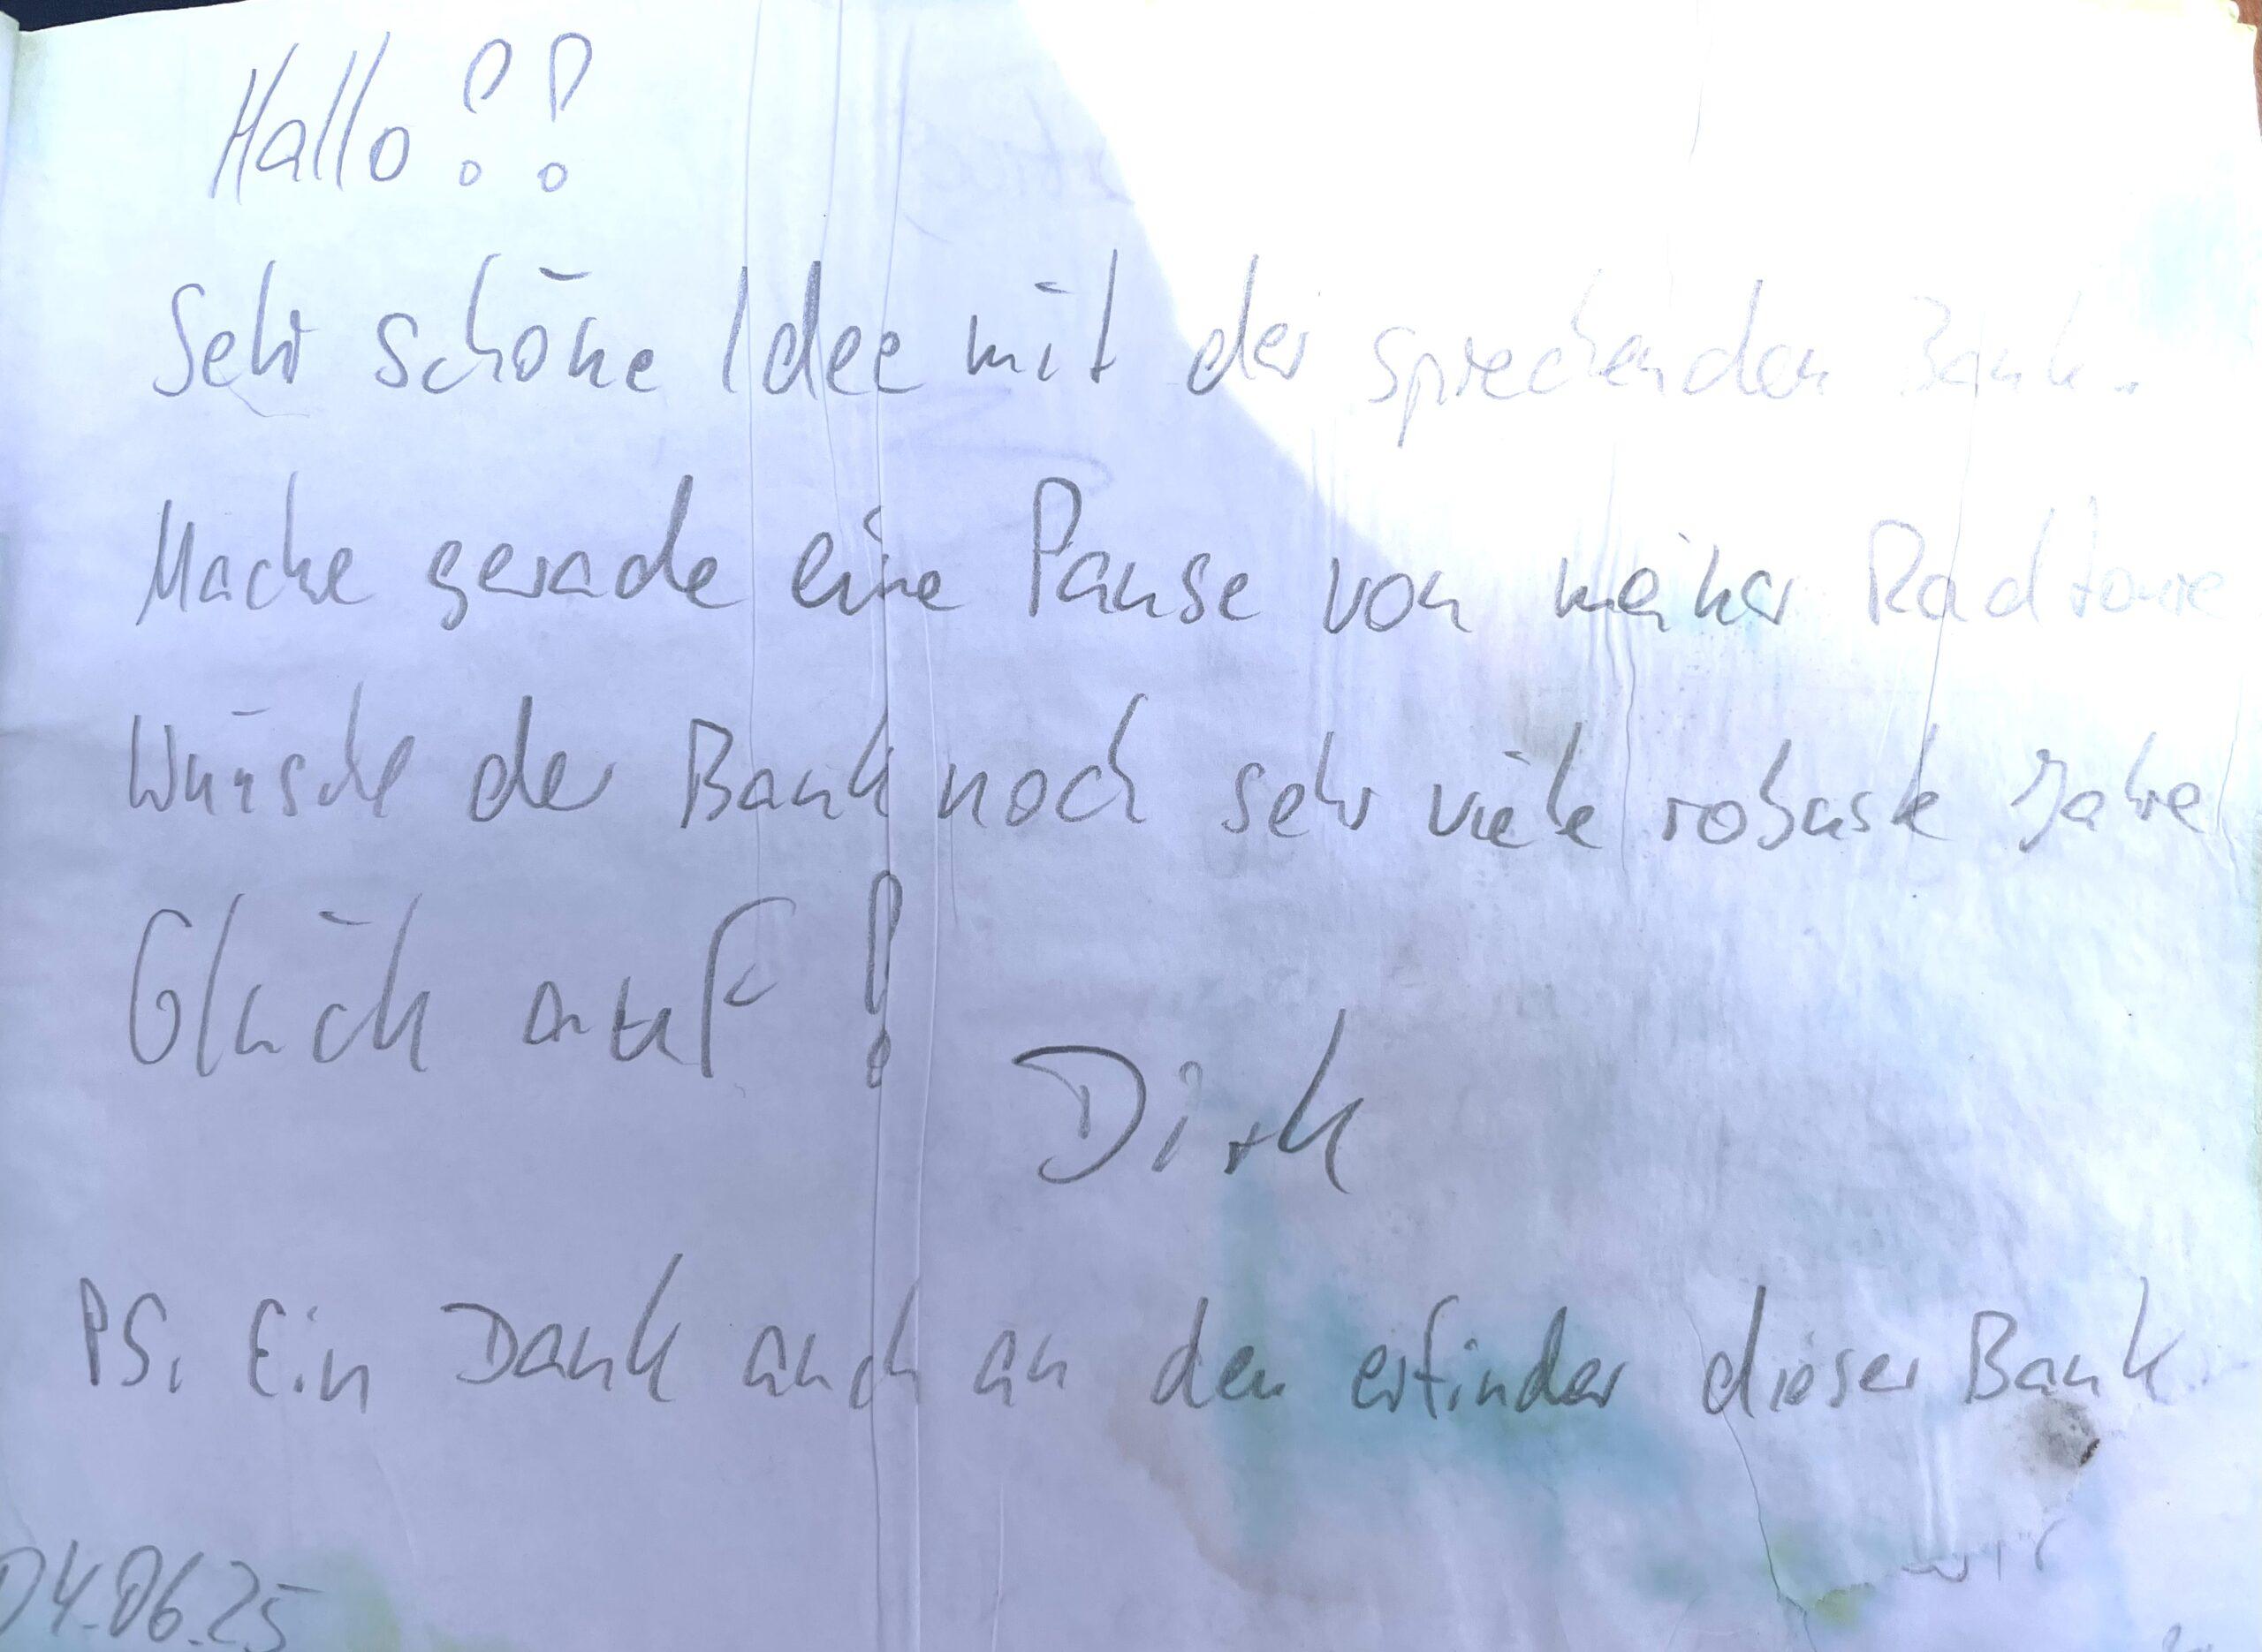 Hallo!!
Sehr schöne Idee mit der sprechenden Bank.
Mache gerade eine Pause von meiner Radtoure
Wünsche der Bank noch sehr viele robuste Jahre
Glück auf!
Dirk
PS. Ein Dank auch an den erfinder dieser Bank
04.06.25